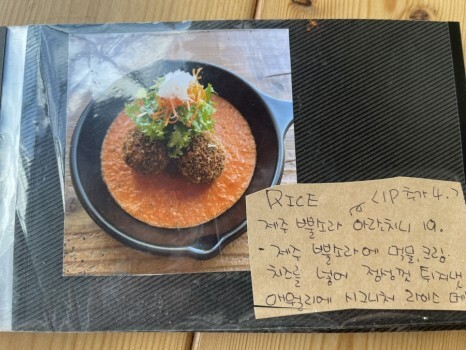 RICE <1P 추가 4.>
제주 뿔소라 아란치니 19.
- 제주 뿔소라에 먹물, 크림,
치즈를 넣어 정성껏 튀겨낸
애월리에 시그니처 라이스 메